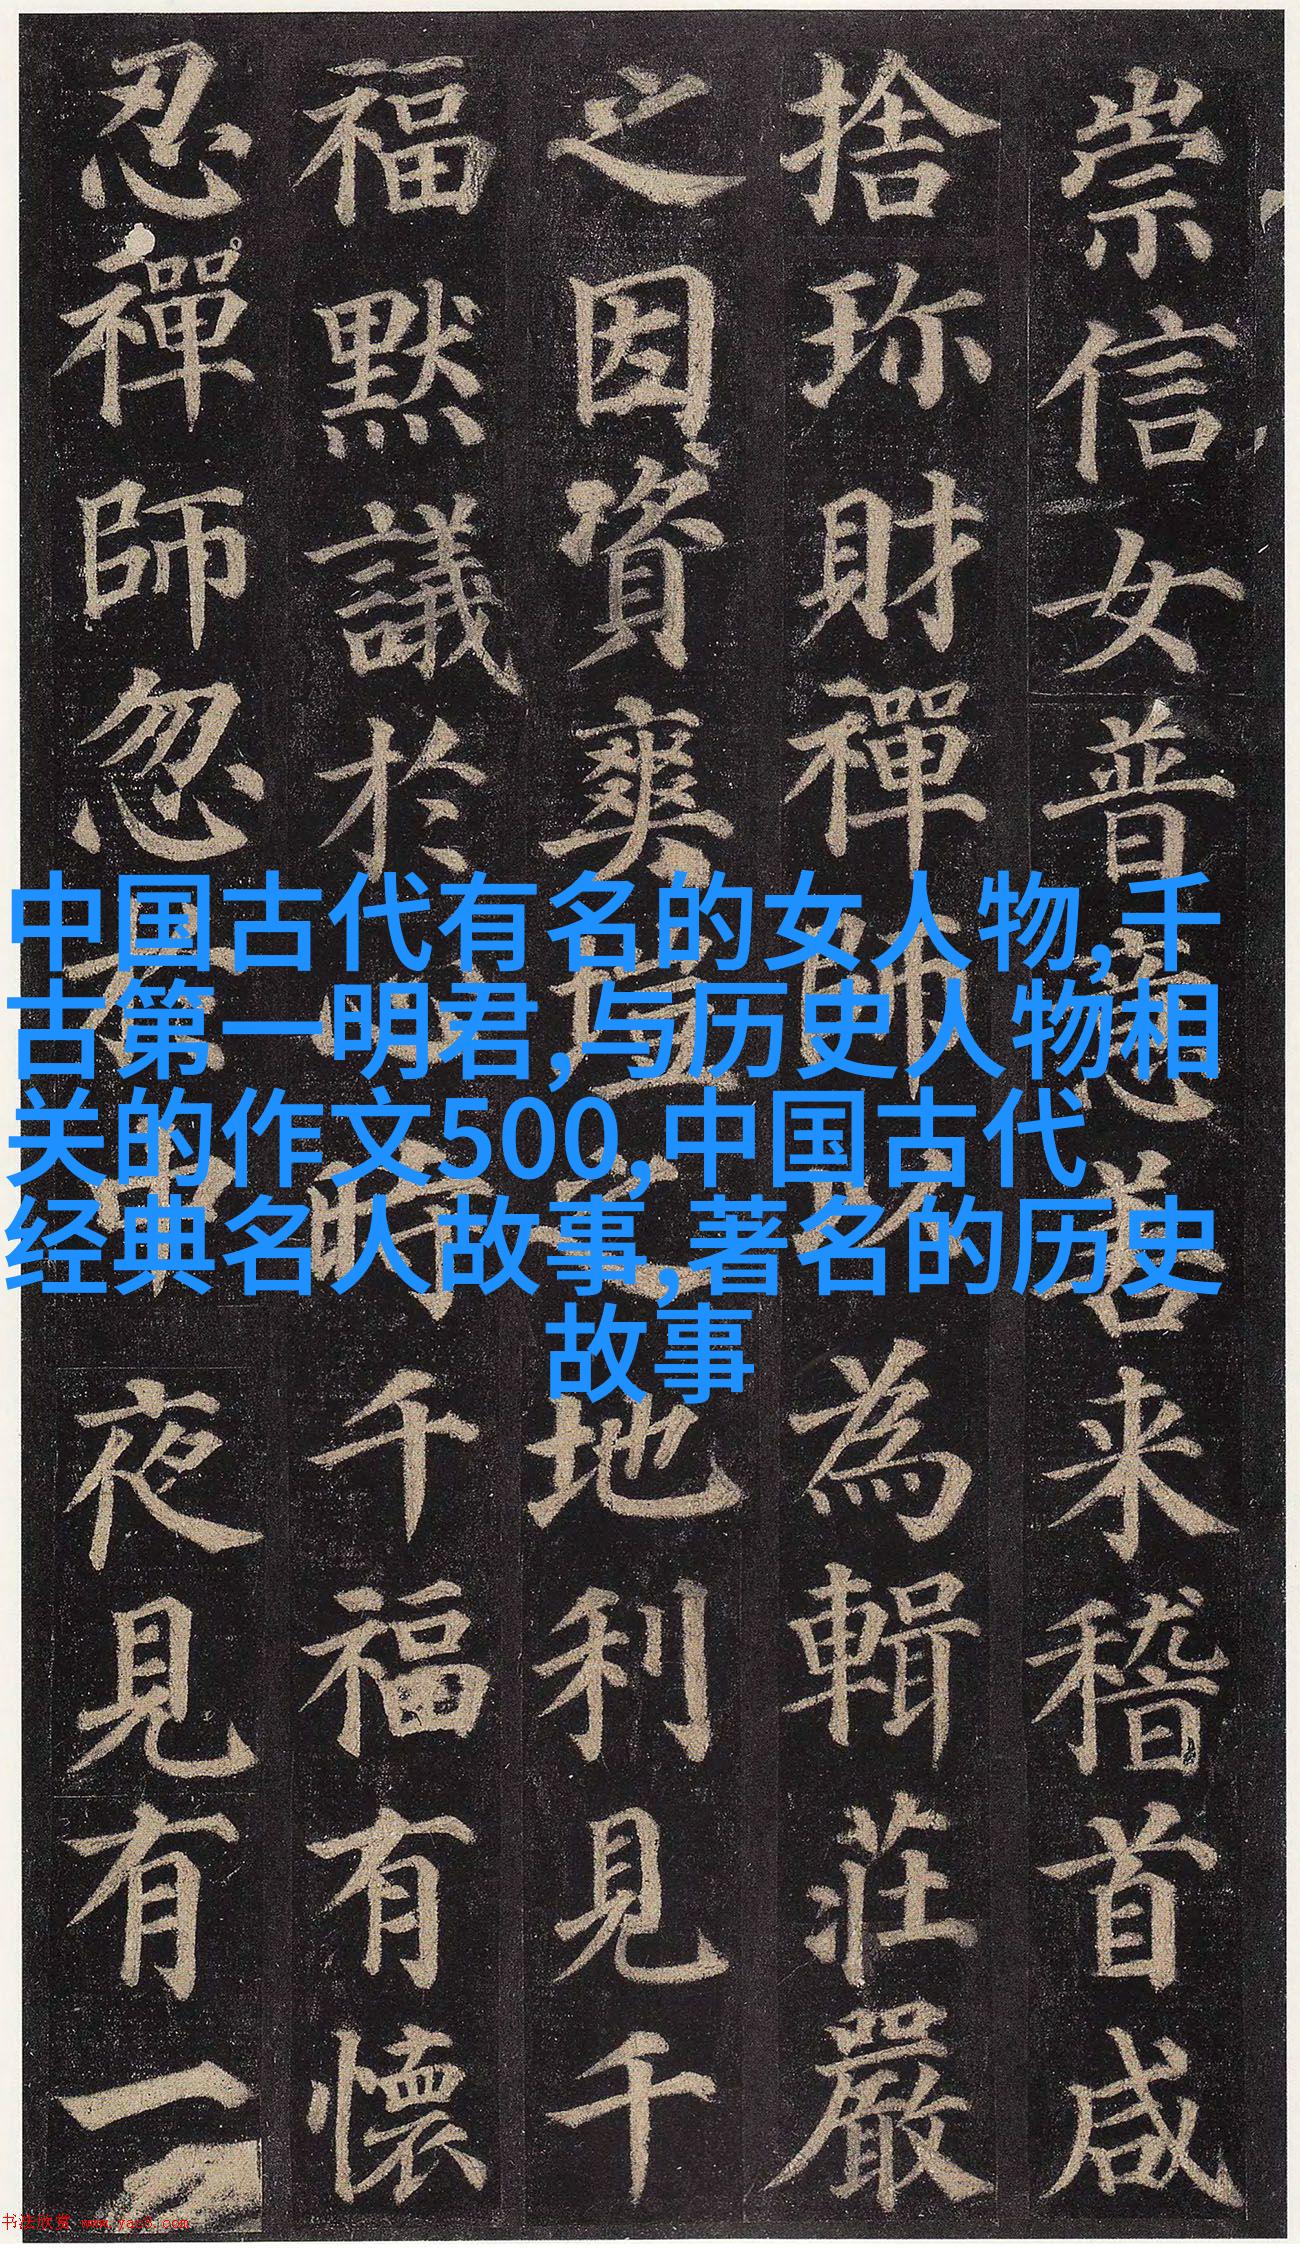 崇信女普意善来稽首咸
捨珎財禪師為輯莊嚴
之因資爽塏之地利見千
福默議於時千福有懷
忍禪師忽中夜見有一
中国古代有名的女人物,千
古第一明君,与历史人物相
关的作文500,中国古代
经典名人故事,著名的历史
故事
书法欣赏 www.yac8.com